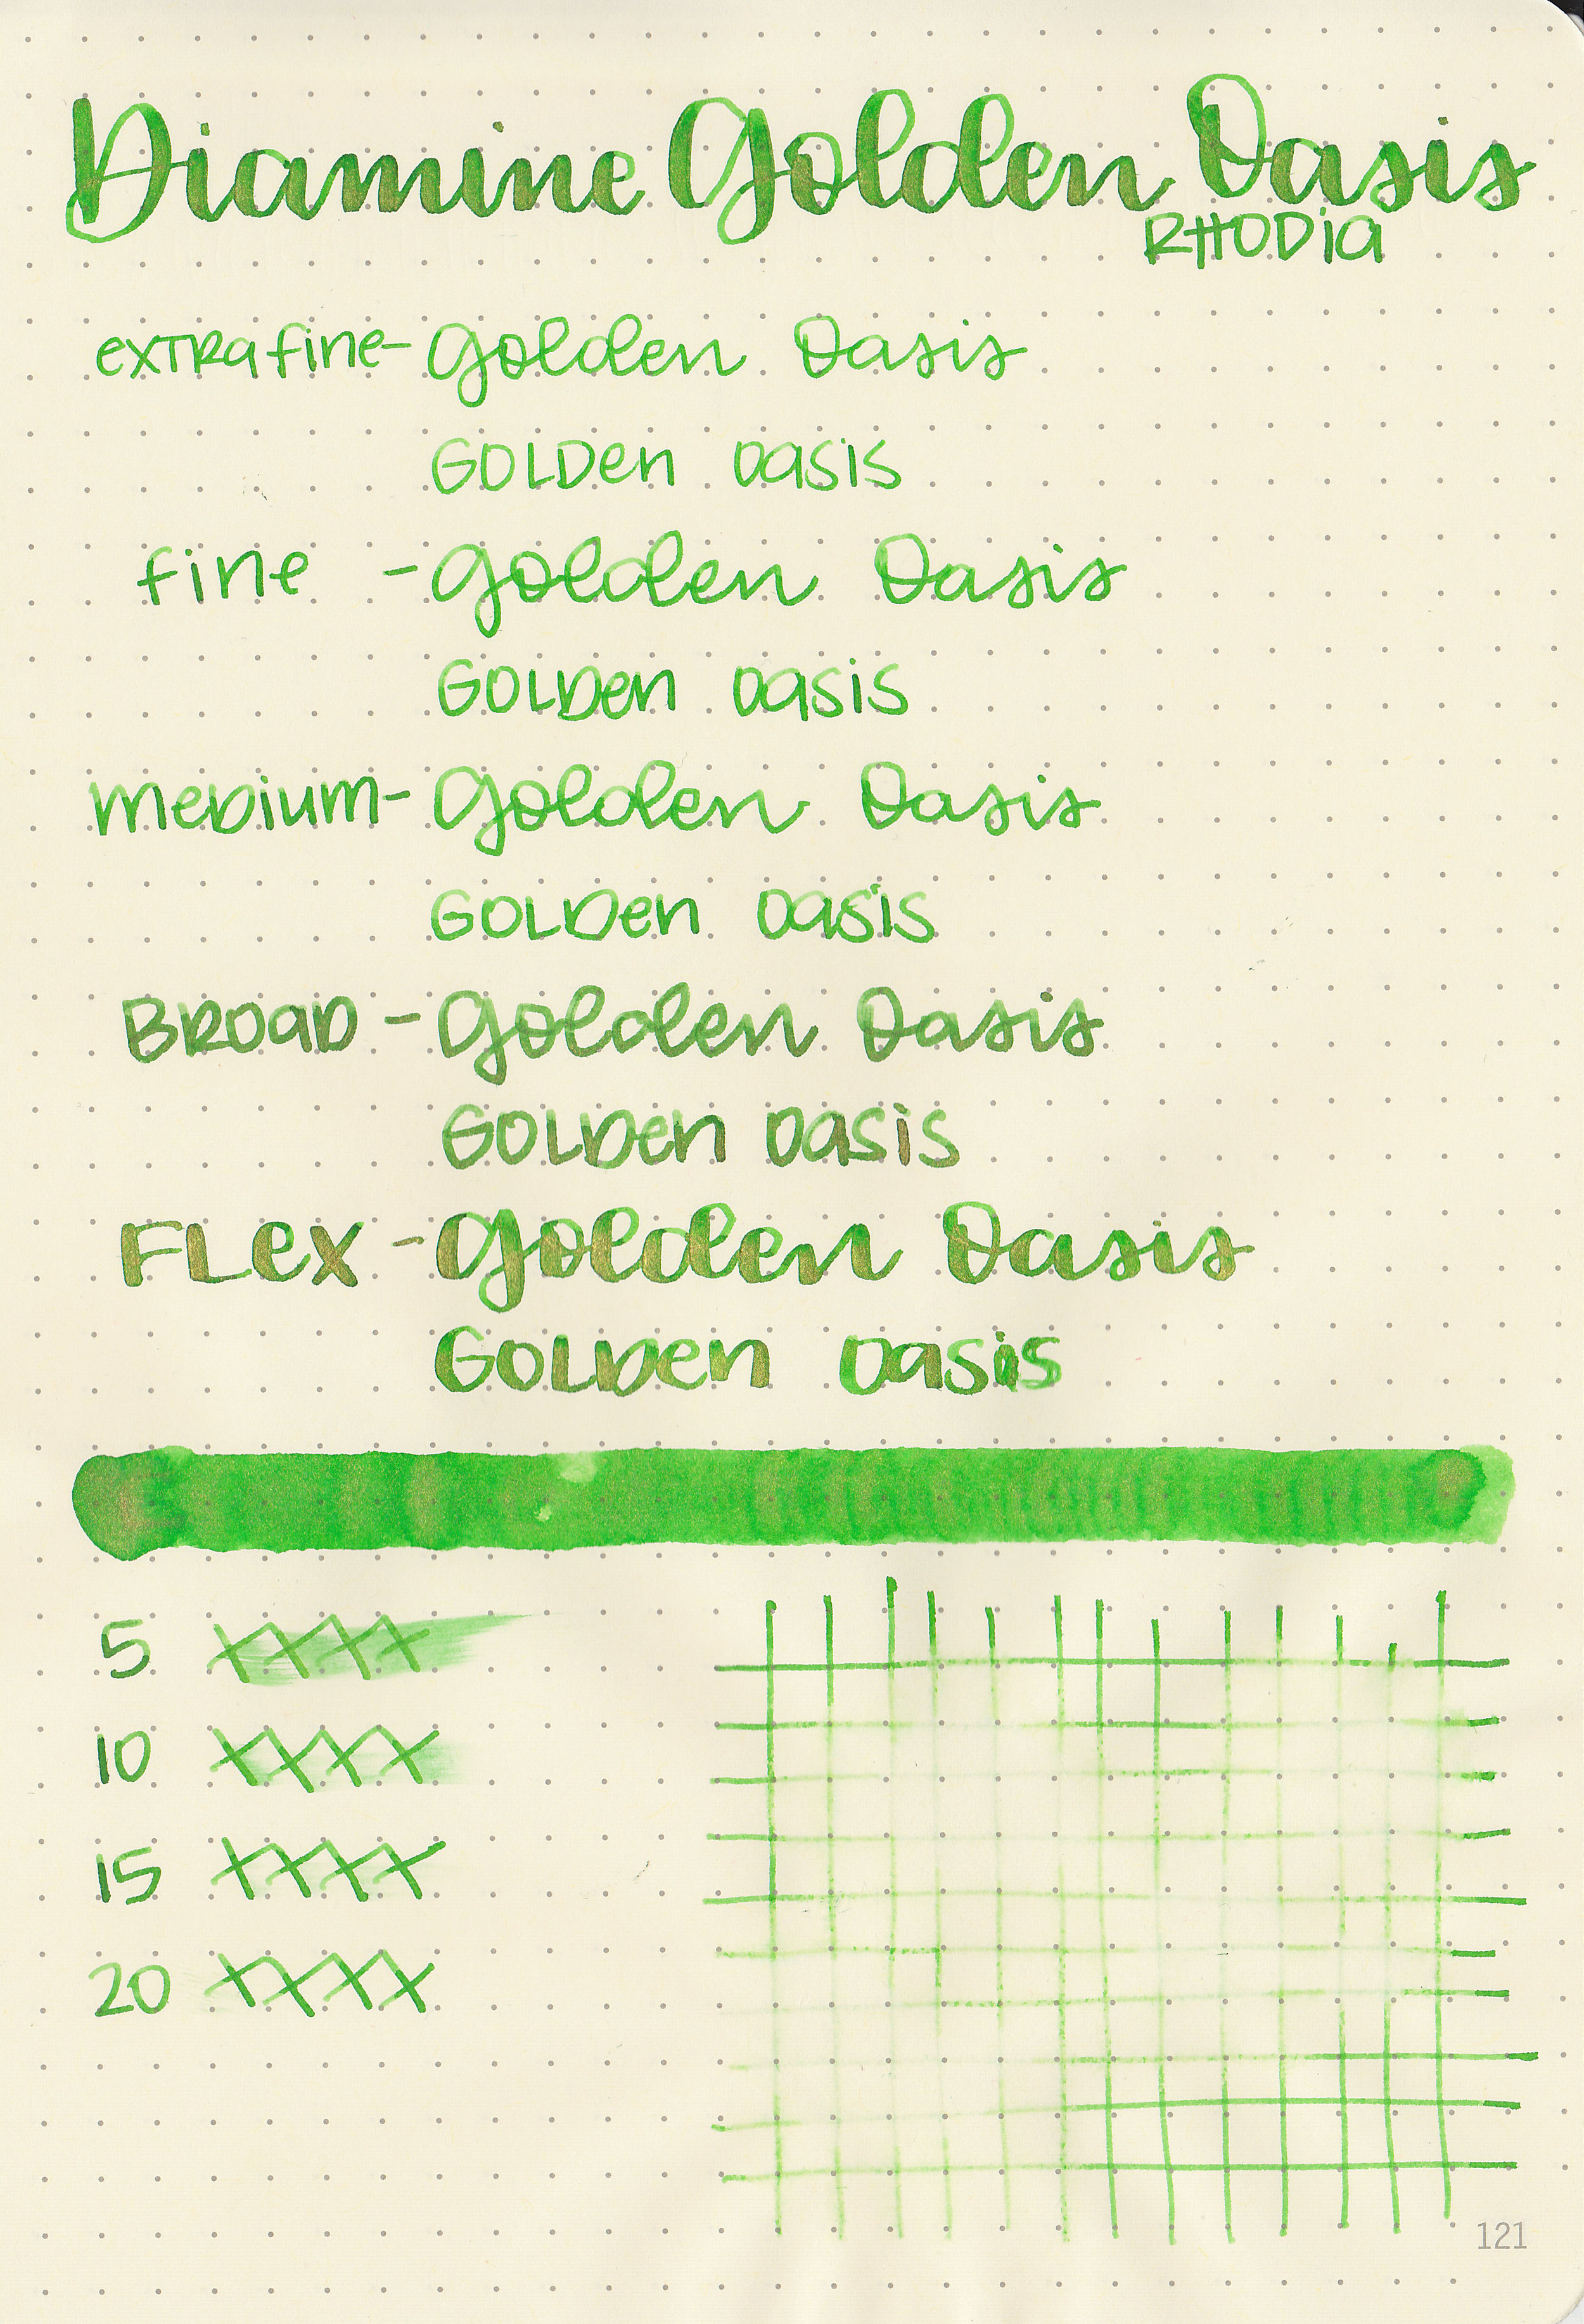 Diamine Golden Oasis
RHODIA
extra fine - Golden Oasis
Golden Oasis
fine - Golden Oasis
Golden Oasis
medium - Golden Oasis
Golden Oasis
Broad - Golden Oasis
Golden Oasis
Flex - Golden Oasis
Golden Oasis
5 XXXX
10 XXXX
15 XXXX
20 XXXX
121